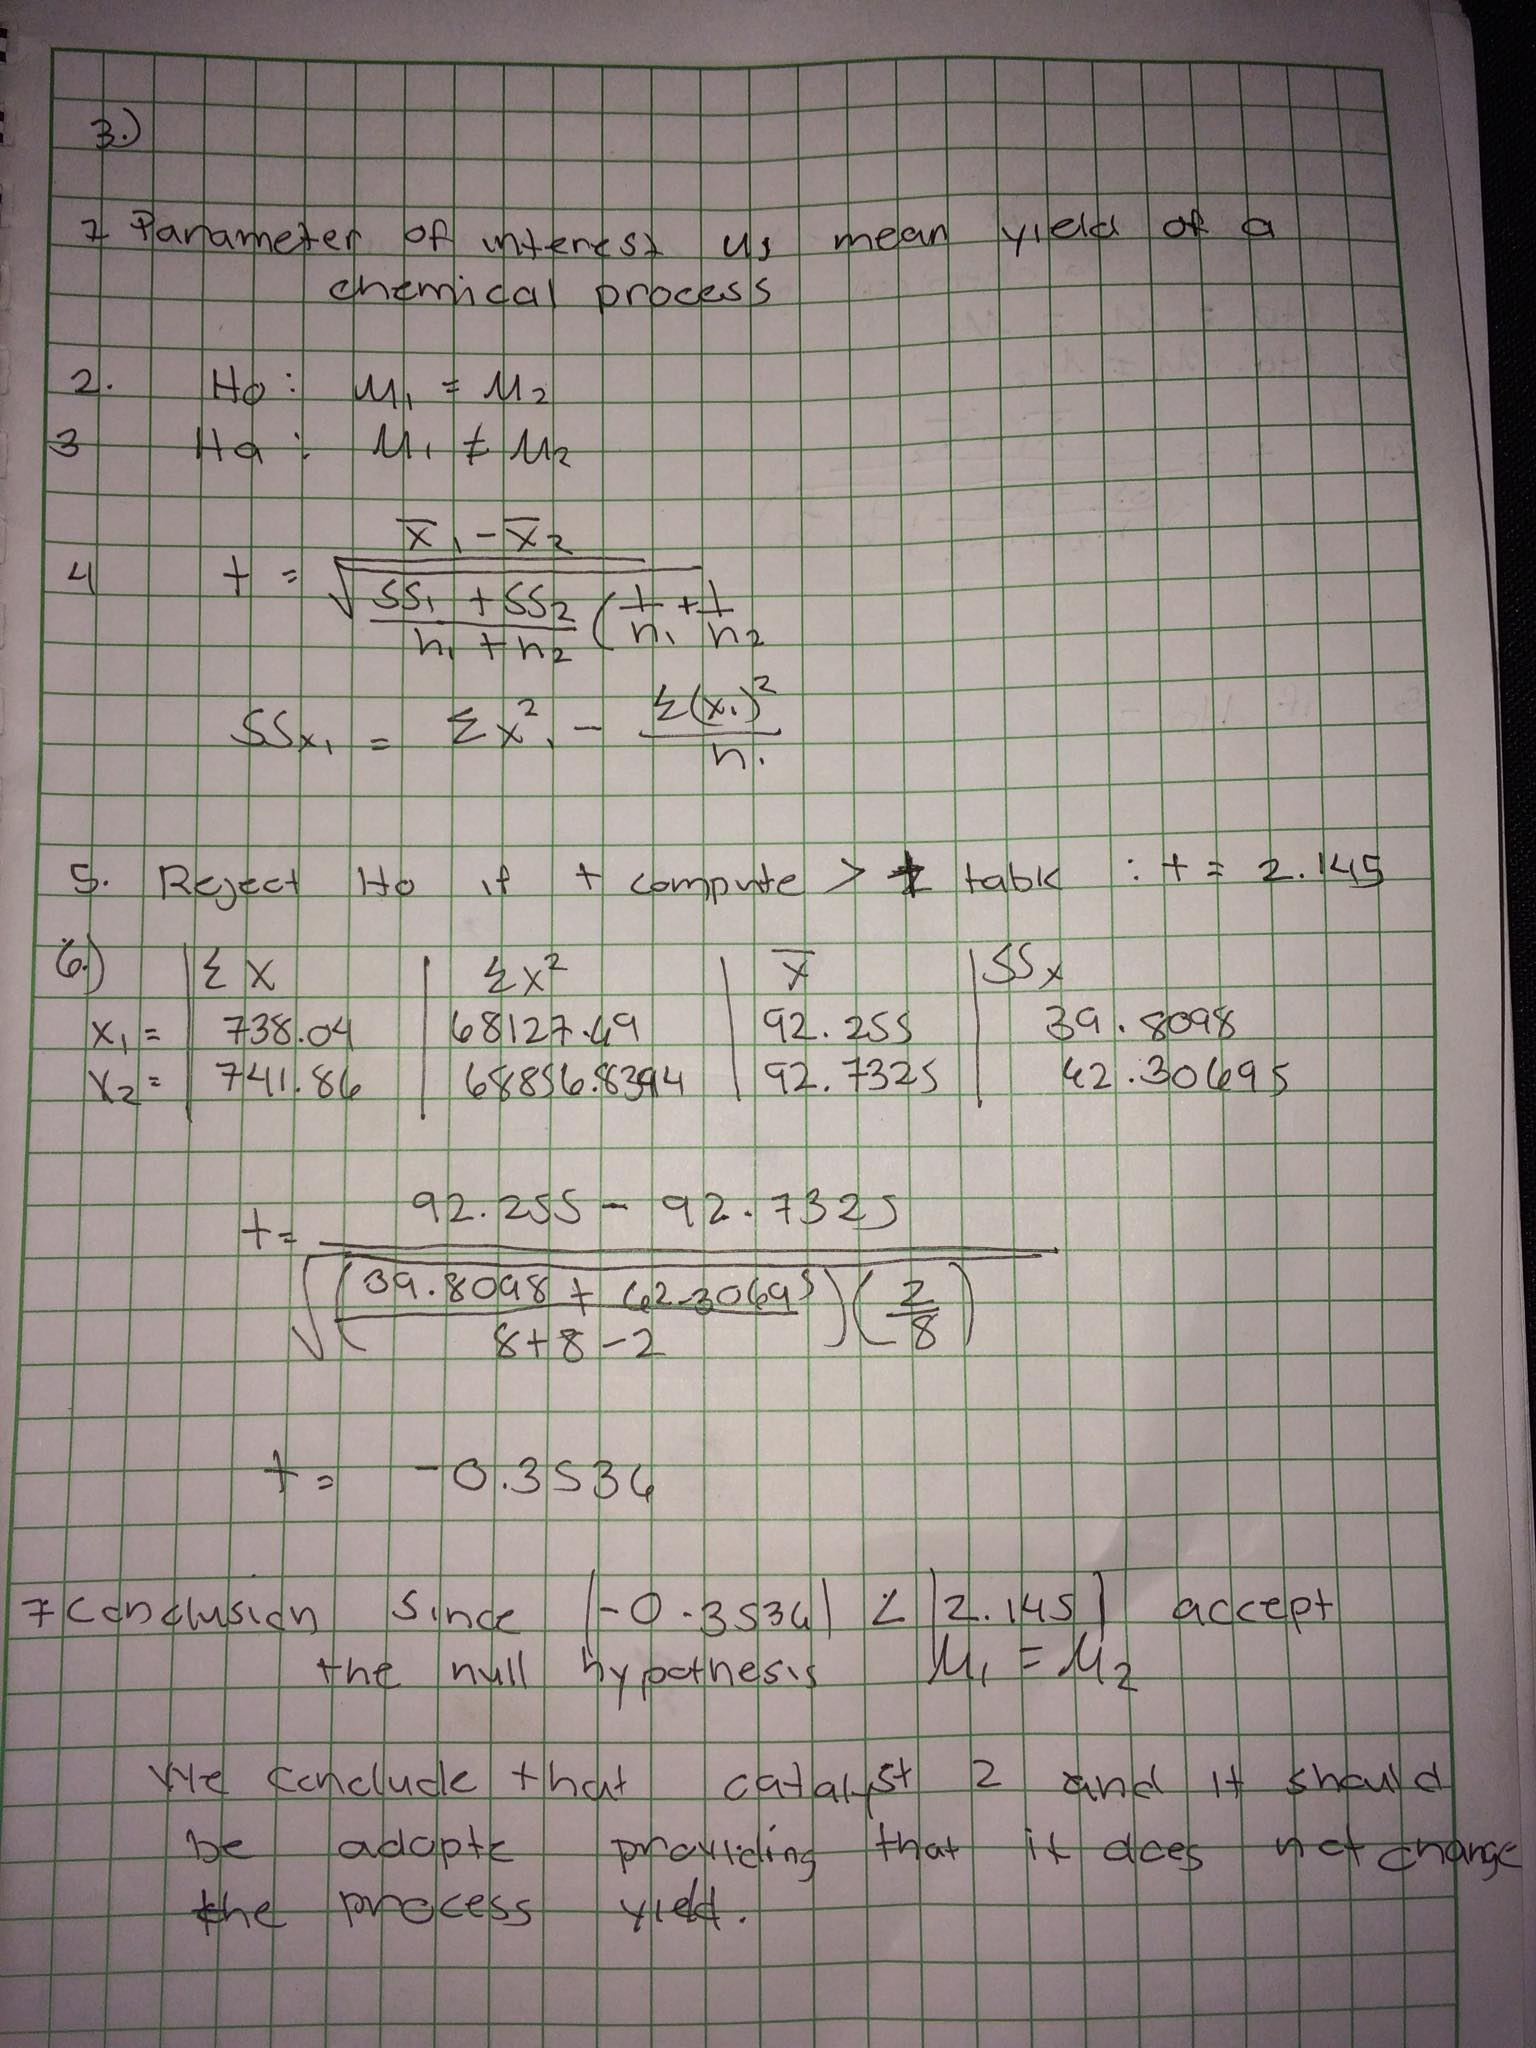 3.)
1 Parameter of interest us mean yield of a
chemical process
2. Ho : μ₁ = μ₂
3 Ha : μ₁ ≠ μ₂
x̄₁ - x̄₂
4 t =
√ SS₁ + SS₂ / n₁ + n₂ ( 1/n₁ + 1/n₂
SSx₁ = Σx²₁ - Σ(x₁)² / n₁
5. Reject Ho if t compute > t table : t = 2.145
6.) | Σx | Σx² | x̄ | SSx
x₁ = | 738.04 | 68127.49 | 92.255 | 39.8098
x₂ = | 741.86 | 68856.8394 | 92.7325 | 62.30695
92.255 - 92.7325
t =
√ ( 39.8098 + 62.30695 / 8+8-2 ) ( 2/8 )
t = -0.3536
7 Conclusion Since |-0.3536| < |2.145| accept
the null hypothesis μ₁ = μ₂
We conclude that catalyst 2 and it should
be adopte providing that it does not change
the process yield.